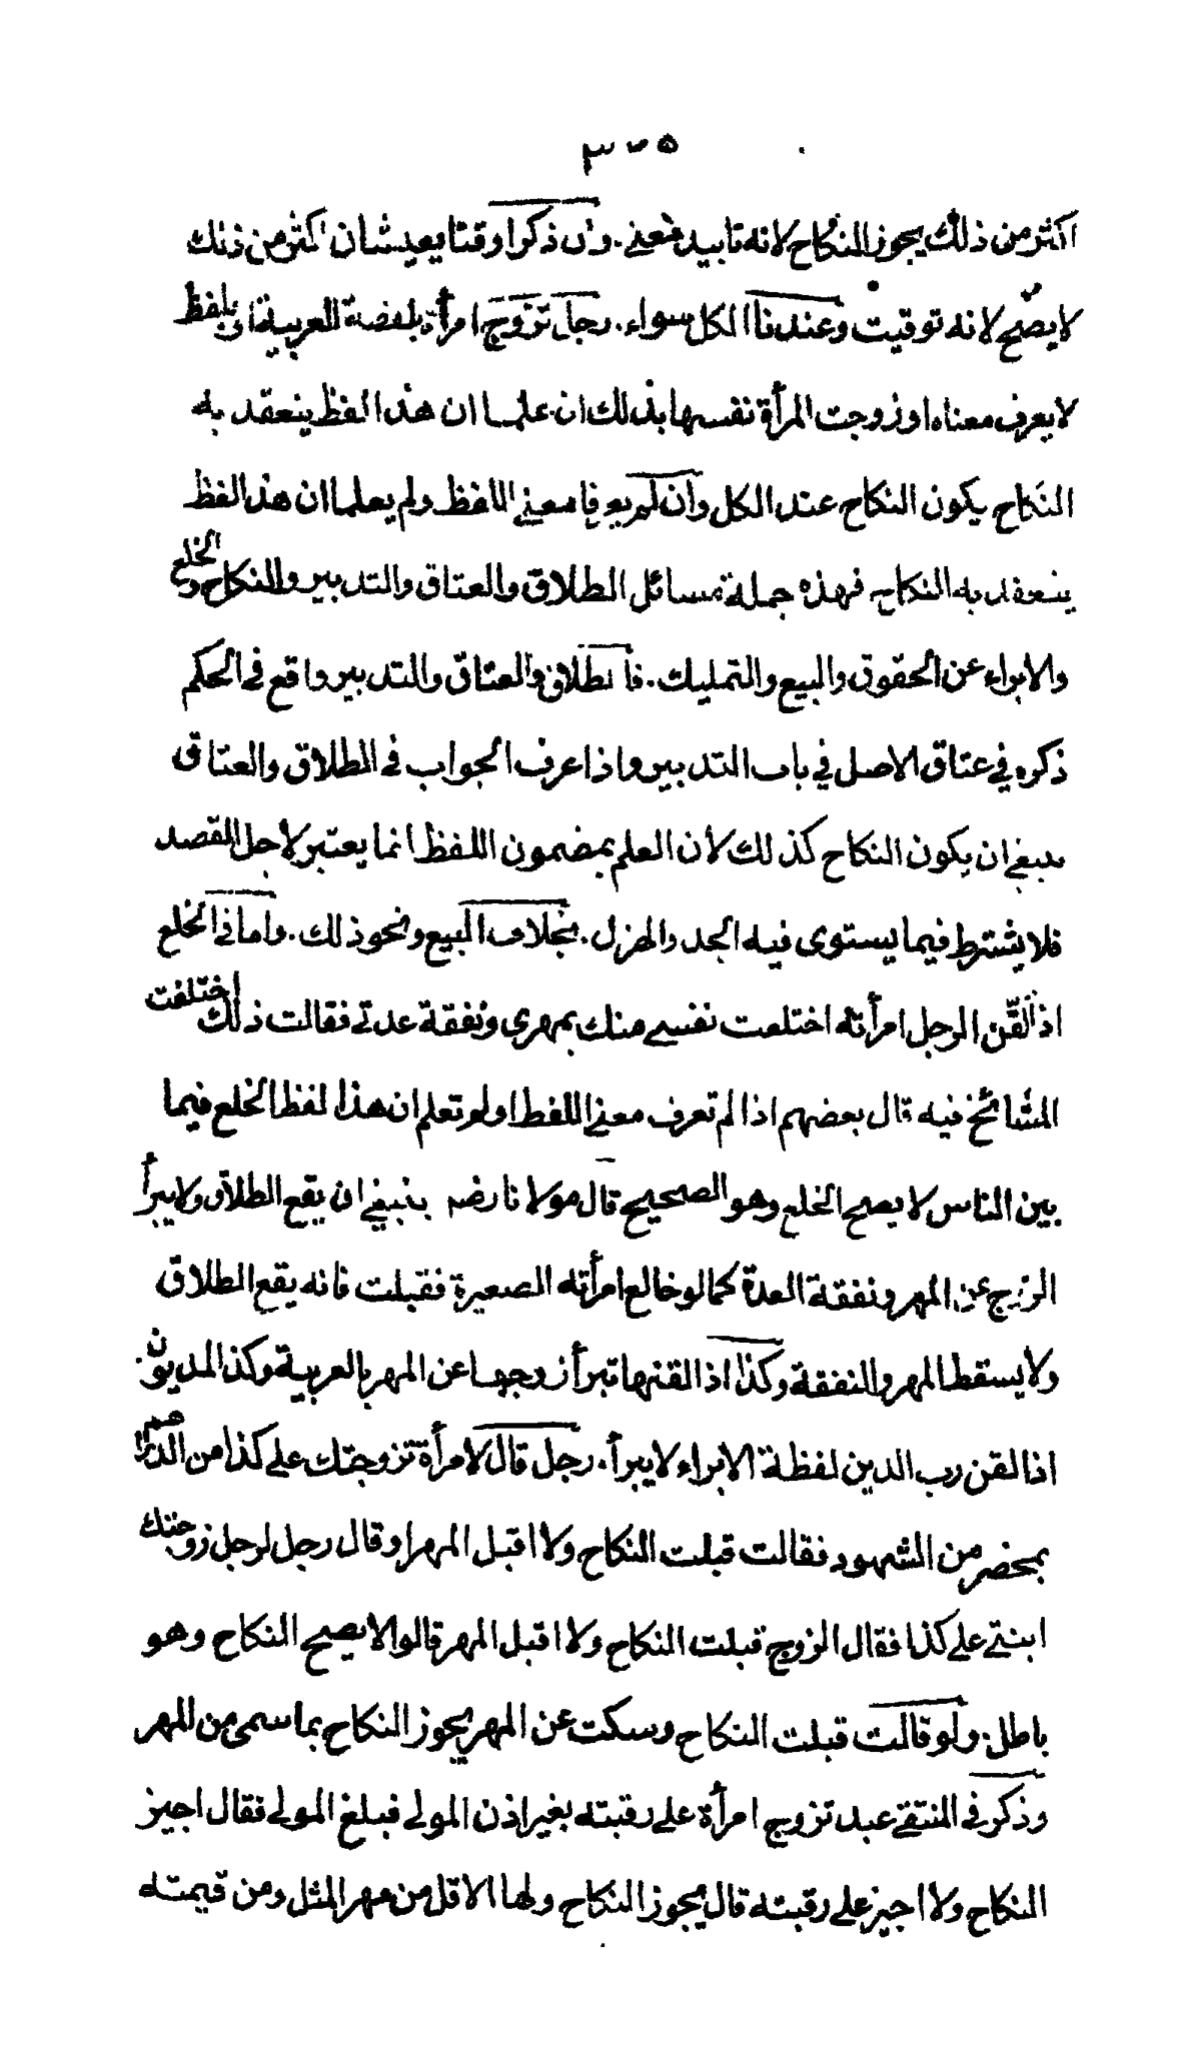 ٣٠٥
اكثر من ذلك يجوز النكاح لانه تابيد معنى. وان ذكرا وقتا يعيشان اكثر من ذلك
لا يصح لانه توقيت وعندنا الكل سواء. رجل تزوج امرأة بلفضة العربية او بلفظ
لا يعرف معناه او زوجت المرأة نفسها بذلك ان علما ان هذا لفظ ينعقد به
النكاح يكون النكاح عند الكل وان لم يعرفا معنى اللفظ ولم يعلما ان هذا لفظ
ينعقد به النكاح فهذه جملة مسائل الطلاق والعتاق والتدبير والنكاح والخلع
والابراء عن الحقوق والبيع والتمليك. فالطلاق والعتاق والتدبير واقع في الحكم
ذكره في عتاق الاصل في باب التدبير واذا عرف الجواب في الطلاق والعتاق
ينبغي ان يكون النكاح كذلك لأن العلم بمضمون اللفظ انما يعتبر لاجل القصد
فلا يشترط فيما يستوى فيه الجد والهزل. بخلاف البيع ونحو ذلك. واما في الخلع
اذا لقّن الرجل امرأته اختلعت نفسي منك بمهري ونفقة عدتي فقالت ذلك اختلفت
المشائخ فيه قال بعضهم اذا لم تعرف معنى اللفظ اولم تعلم ان هذا لفظ الخلع فيما
بين الناس لا يصح الخلع وهو الصحيح قال مولانا رضه ينبغي ان يقع الطلاق ولا يبرأ
الزوج عن المهر ونفقة العدة كما لو خالع امرأته الصغيرة فقبلت فانه يقع الطلاق
ولا يسقط المهر والنفقة وكذا اذا لقنها تبرأ زوجها عن المهر بالعربية وكذا المديون.
اذا لقن رب الدين لفظة الابراء لا يبرأ. رجل قال لامرأة تزوجتك على كذا من الدراهم
بمحضر من الشهود فقالت قبلت النكاح ولا اقبل المهر او قال رجل لرجل زوجتك
ابنتي على كذا فقال الزوج قبلت النكاح ولا اقبل المهر قالوا لا يصح النكاح وهو
باطل. ولو قالت قبلت النكاح وسكت عن المهر يجوز النكاح بما سمى من المهر
وذكر في المنتقى عبد تزوج امرأة على رقبته بغير اذن المولى فبلغ المولى فقال اجيز
النكاح ولا اجيز على رقبته قال يجوز النكاح ولها الاقل من مهر المثل ومن قيمته